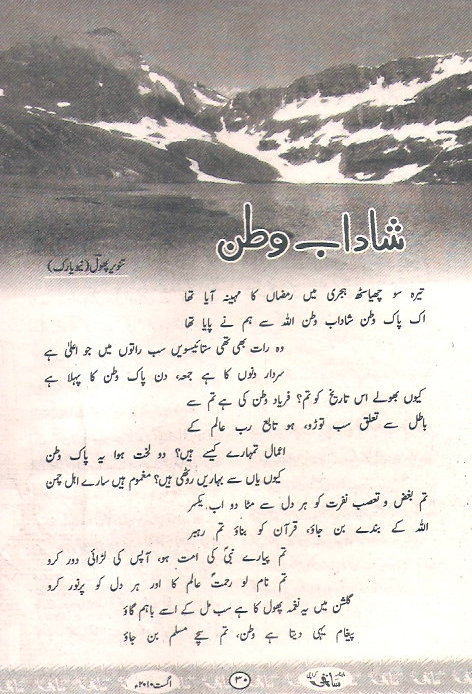 شاداب وطن
تنویر پھول (نیویارک)
تیرہ سو چھیاسٹھ ہجری میں رمضاں کا مہینہ آیا تھا
اک پاک وطن شاداب وطن اللہ سے ہم نے پایا تھا
وہ رات بھی تھی ستائیسویں سب راتوں میں جو اعلیٰ ہے
سردار دنوں کا ہے جمعہ، دن پاک وطن کا پہلا ہے
کیوں بھولے اس تاریخ کو تم؟ فریاد وطن کی ہے تم سے
باطل سے تعلق سب توڑو، ہو تابع رب عالم کے
اعمال تمہارے کیسے ہیں؟ دو لخت ہوا یہ پاک وطن
کیوں یاں سے بہاریں روٹھی ہیں؟ مغموم ہیں سارے اہل چمن
تم بغض و تعصب نفرت کو ہر دل سے مٹا دو اب یکسر
اللہ کے بندے بن جاؤ، قرآن کو بناؤ تم رہبر
تم پیارے نبیؐ کی امت ہو، آپس کی لڑائی دور کرو
تم نام لو رحمتؐ عالم کا اور ہر دل کو پرنور کرو
گلشن میں یہ نغمہ پھول کا ہے سب مل کے اسے باہم گاؤ
پیغام یہی دیتا ہے وطن، تم سچے مسلم بن جاؤ
ماہنامہ ساتھی کراچی
۳۰
اگست ۲۰۱۰ء